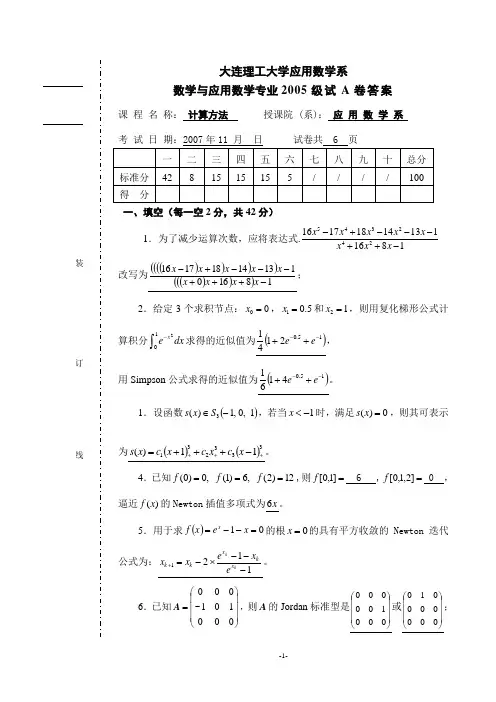 大连理工大学应用数学系
数学与应用数学专业 2005 级试 A 卷答案
课 程 名 称: 计算方法 授课院 (系): 应 用 数 学 系
考 试 日 期: 2007 年 11 月 日 试卷共 6 页
一 二 三 四 五 六 七 八 九 十 总分
标准分 42 8 15 15 15 5 / / / / 100
得 分
一、填空(每一空 2 分,共 42 分)
1.为了减少运算次数,应将表达式.(16x^5-17x^4+18x^3-14x^2-13x-1)/(x^4+16x^2+8x-1)
改写为 (((((16x-17)x+18)x-14)x-13)x-1)/((((x+0)x+16)x+8)x-1);
2.给定 3 个求积节点:x_0=0,x_1=0.5 和 x_2=1,则用复化梯形公式计
算积分 ∫_0^1 e^{-x^2}dx 求得的近似值为 1/4(1+2e^{-0.5}+e^{-1}),
用 Simpson 公式求得的近似值为 1/6(1+4e^{-0.5}+e^{-1})。
1.设函数 s(x)∈S_3(-1, 0, 1),若当 x<-1 时,满足 s(x)=0,则其可表示
为 s(x)=c_1(x+1)_+^3+c_2x_+^3+c_3(x-1)_+^3。
4.已知 f(0)=0, f(1)=6, f(2)=12,则 f[0,1]= 6 ,f[0,1,2]= 0 ,
逼近 f(x) 的 Newton 插值多项式为 6x。
5.用于求 f(x)=e^x-1-x=0 的根 x=0 的具有平方收敛的 Newton 迭代
公式为:x_{k+1}=x_k-2×(e^{x_k}-1-x_k)/(e^{x_k}-1)。
6.已知 A=(0 0 0; -1 0 1; 0 0 0),则 A 的 Jordan 标准型是 (0 0 0; 0 0 1; 0 0 0) 或 (0 1 0; 0 0 0; 0 0 0);
装
订
线
-1-